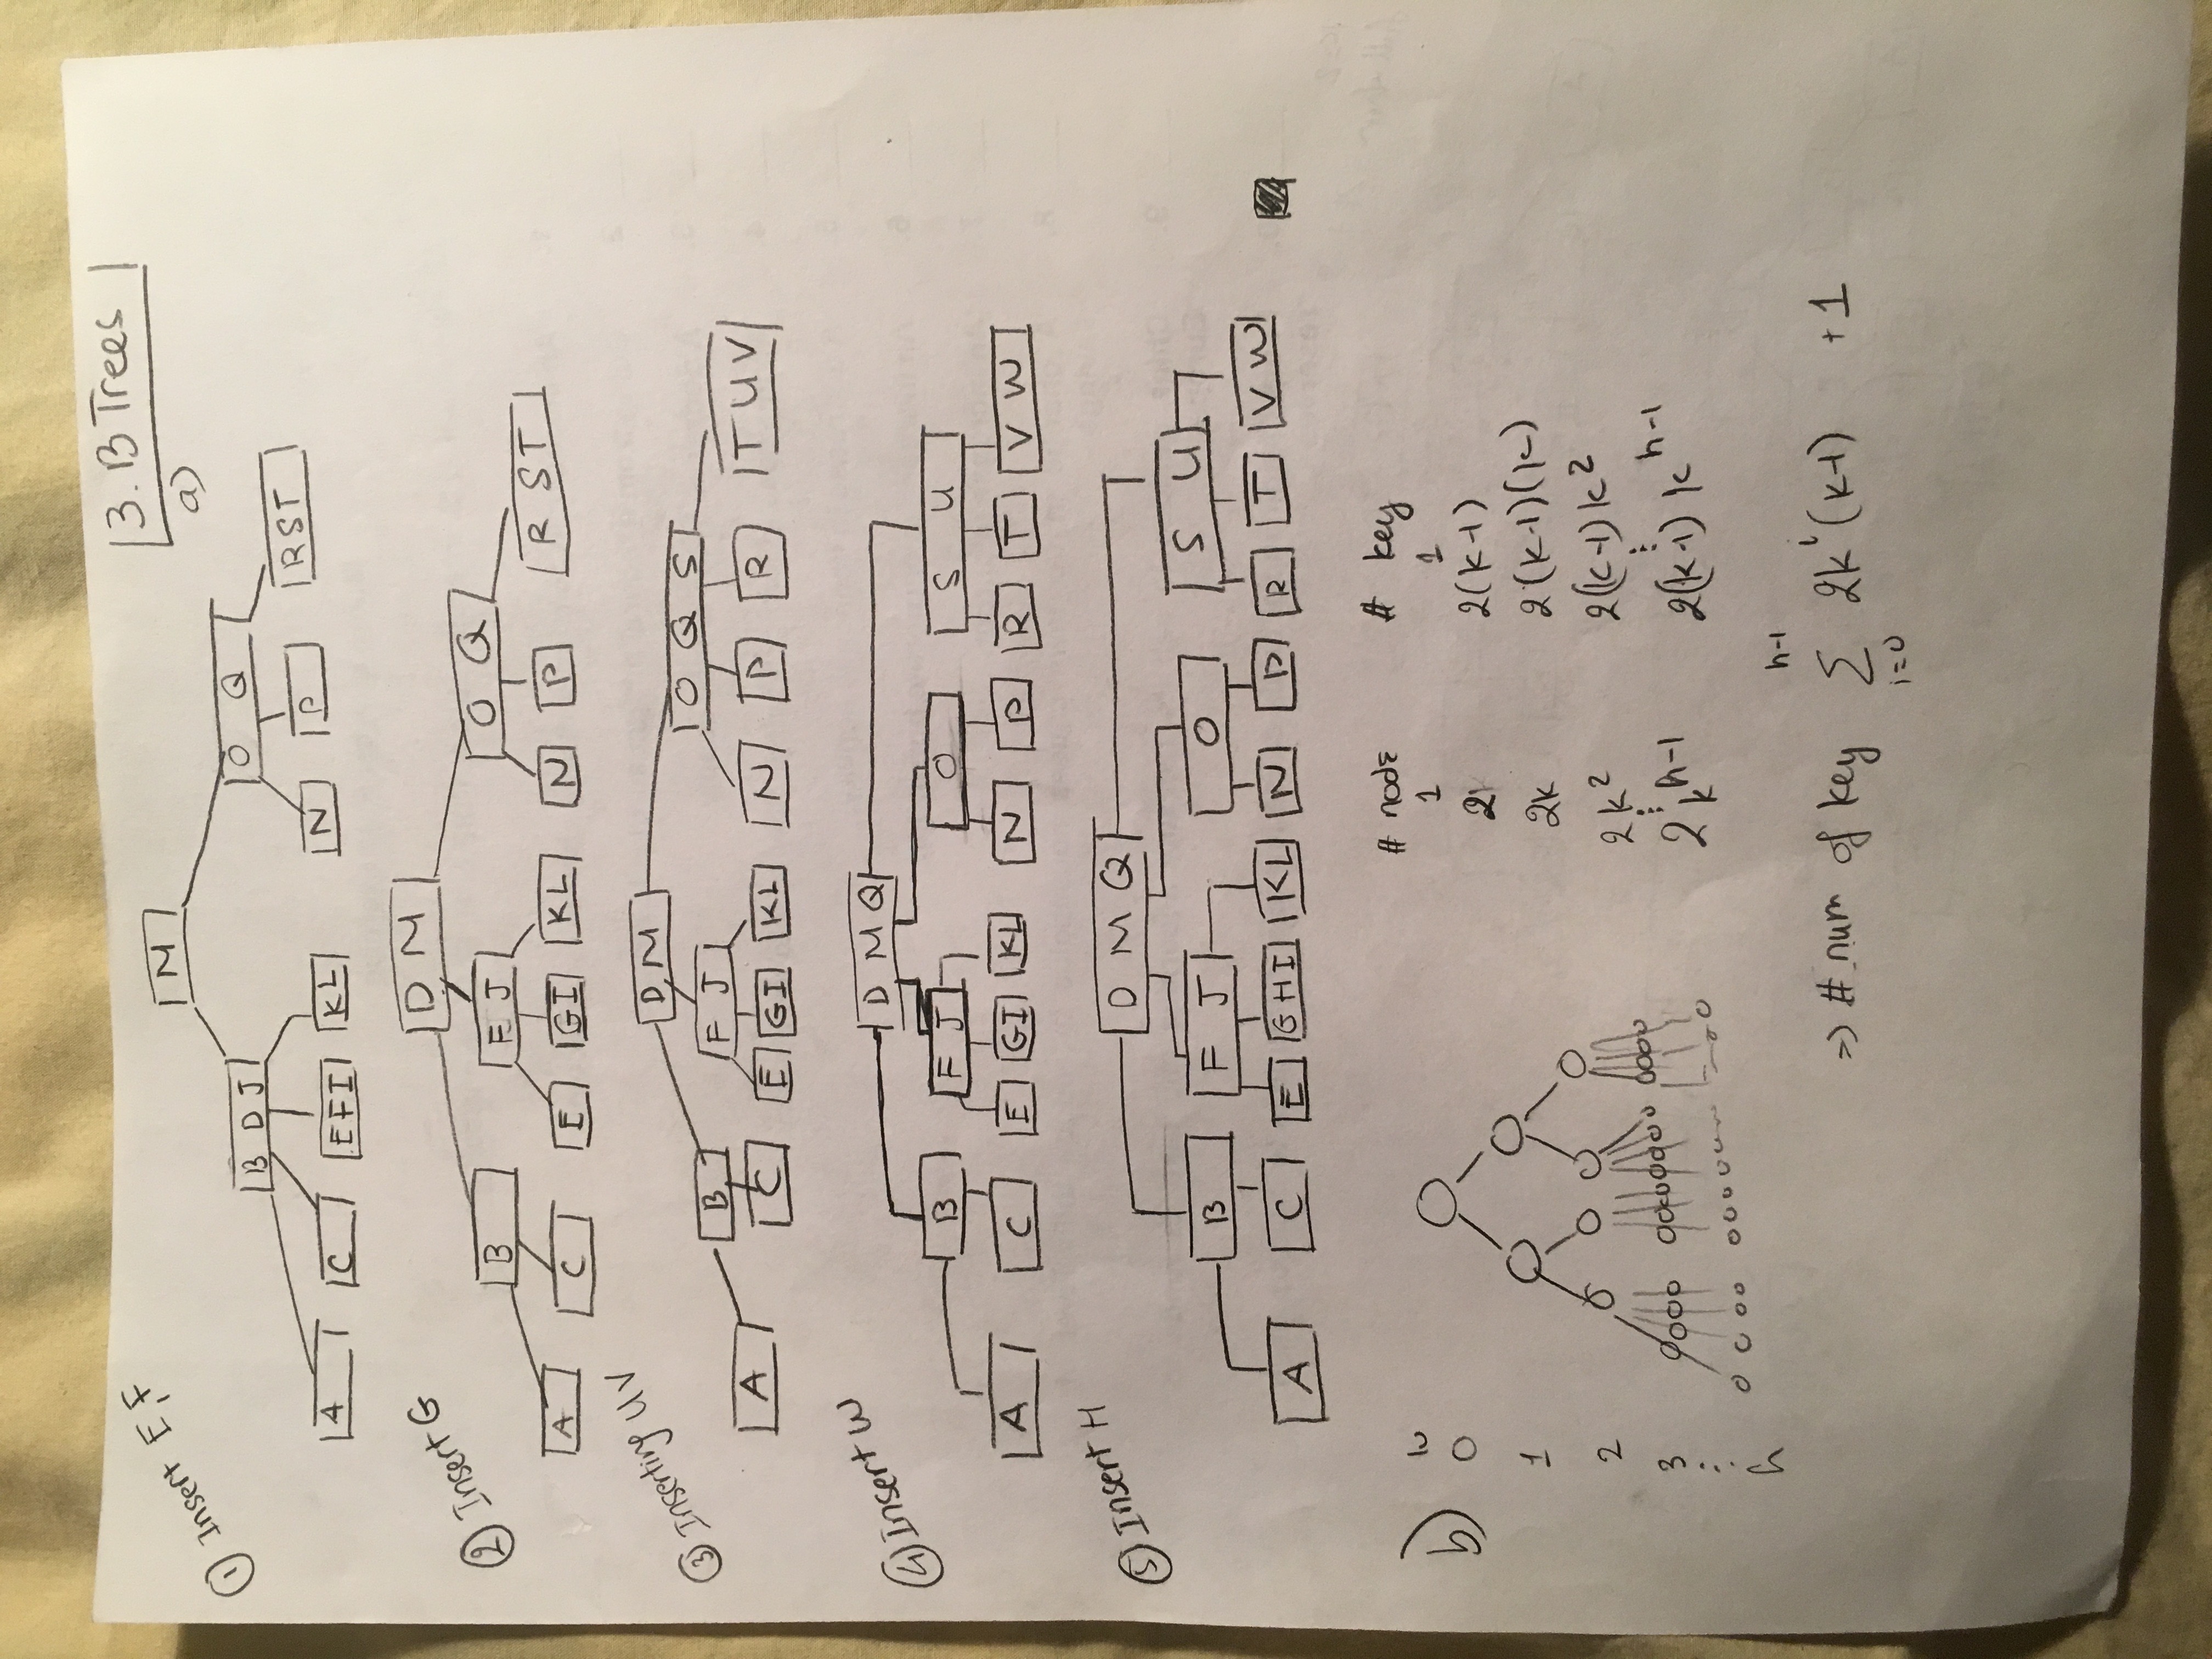 3. B Trees
a)
① Insert E,F
M
B D J
O Q
A C EFI KL N P RST
② Insert G
D M
B F J O Q
A C E GI KL N P R ST
③ Inserting UV
D M
B F J O Q S
A C E GI KL N P R T U V
④ Insert W
D M Q
B F J O S U
A C E GI KL N P R T V W
⑤ Insert H
D M Q
B F J O S U
A C E GHI KL N P R T V W
b)
# node # key
0 1 1
2 2(k-1)
1 2k 2(k-1)(k)
2 2k² 2(k-1)k²
3 ⋮ ⋮
⋮ 2k^h-1 2(k-1)k^h-1
h
=> # num of key ∑ i=0 h-1 2k^i(k-1) +1